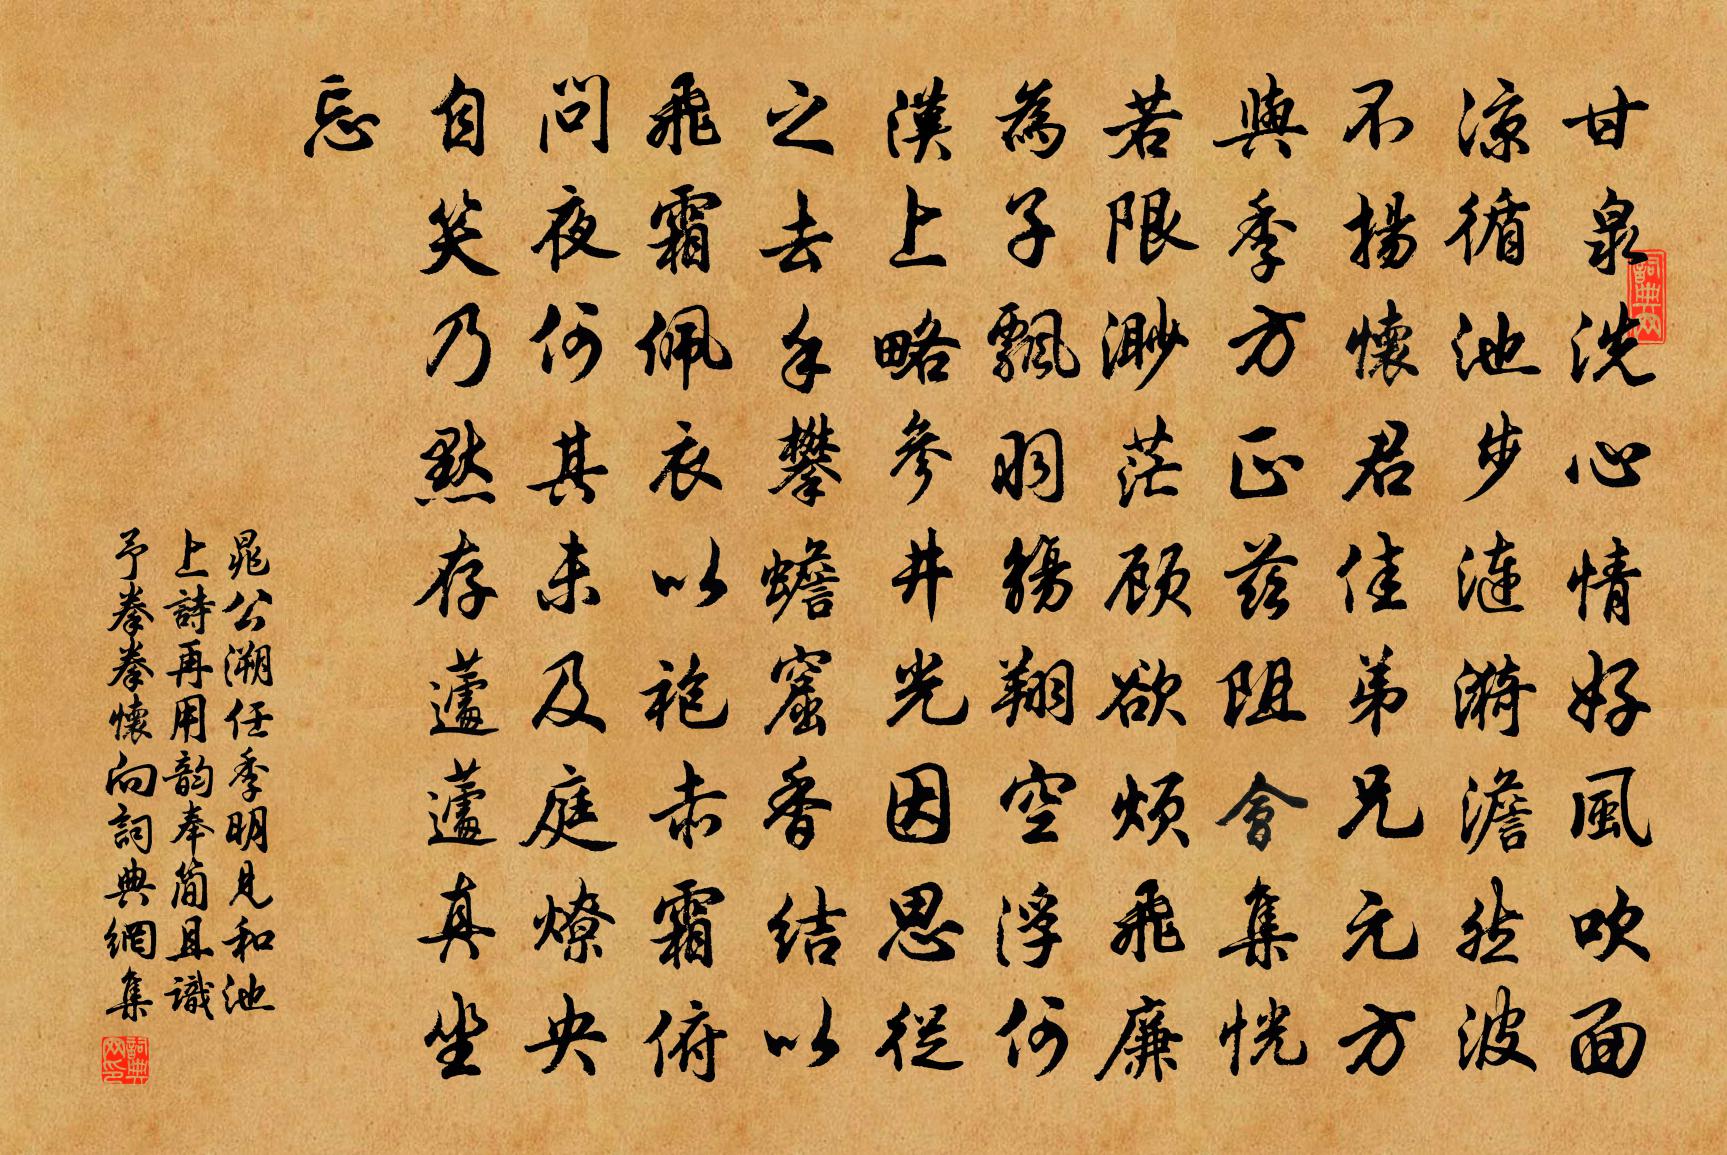 甘泉洗心情好風吹面
涼循池步漣漪澹然波
不揚懷君佳弟兄元方
與季方正茲阻會集恍
若限渺茫顧欲煩飛廉
為子飄羽觴翔空浮何
漢上略參井光因思從
之去手攀蟾窟香結以
飛霜佩衣以袍赤霜俯
問夜何其未及庭燎央
自笑乃黙存蘧蘧真坐
忘
晁公溯任季明見和池
上詩再用韵奉簡且識
予拳拳懷向詞典網集
詞典网
詞典网印